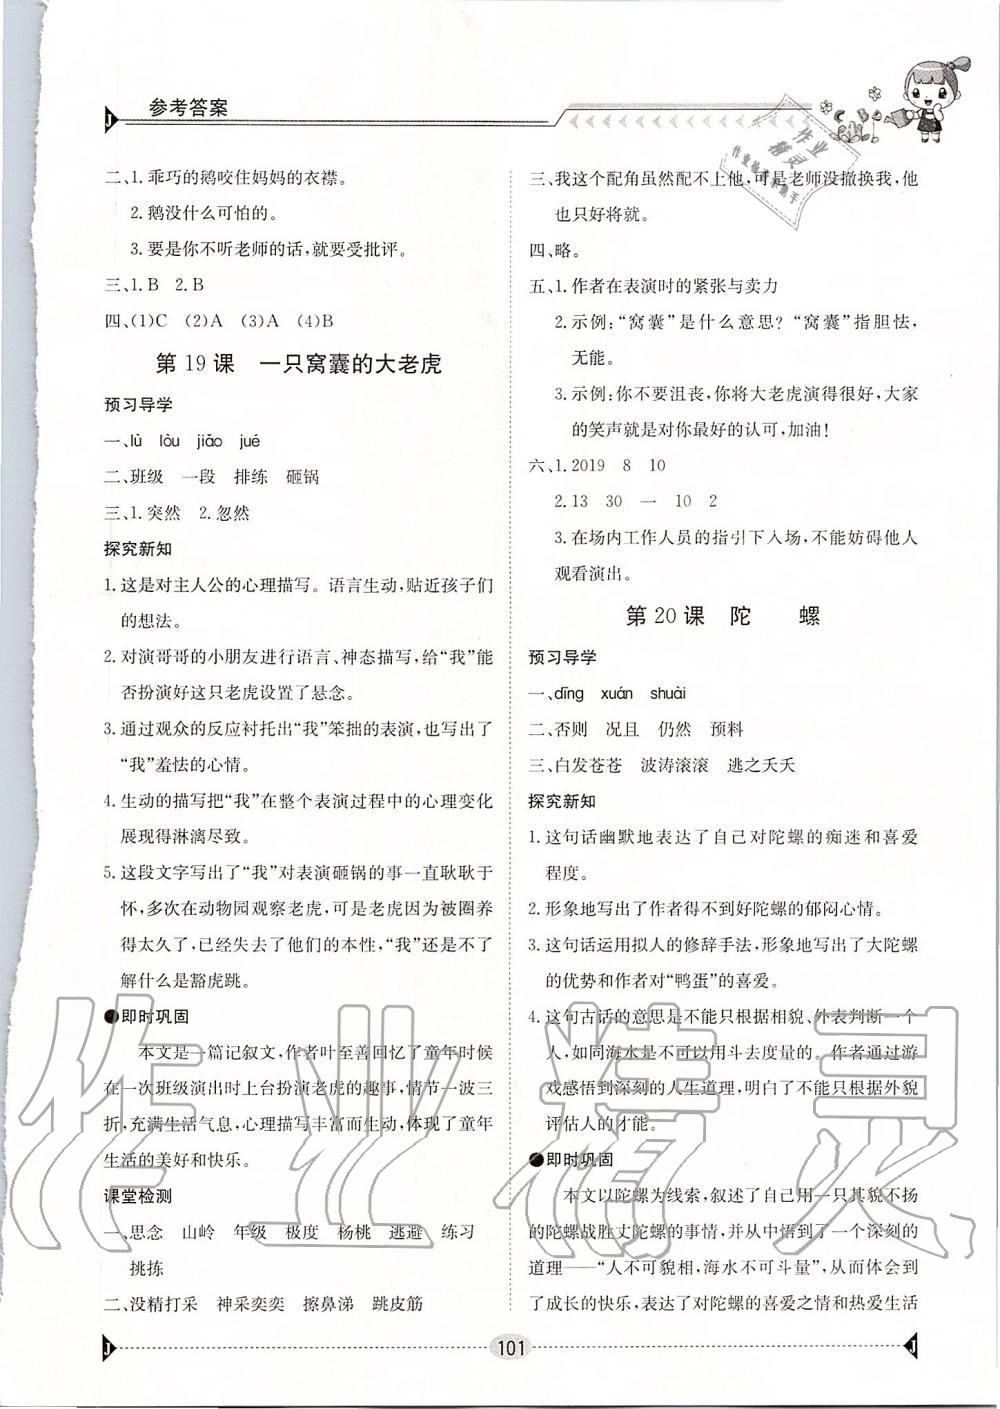 参考答案
二、1. 乖巧的鹅咬住妈妈的衣襟。
2. 鹅没什么可怕的。
3. 要是你不听老师的话,就要受批评。
三、1. B 2. B
四、(1)C (2)A (3)A (4)B
第 19 课 一只窝囊的大老虎
预习导学
一、lù lòu jiǎo jué
二、班级 一段 排练 砸锅
三、1. 突然 2. 忽然
探究新知
1. 这是对主人公的心理描写。语言生动,贴近孩子们
的想法。
2. 对演哥哥的小朋友进行语言、神态描写,给“我”能
否扮演好这只老虎设置了悬念。
3. 通过观众的反应衬托出“我”笨拙的表演,也写出了
“我”羞怯的心情。
4. 生动的描写把“我”在整个表演过程中的心理变化
展现得淋漓尽致。
5. 这段文字写出了“我”对表演砸锅的事一直耿耿于
怀,多次在动物园观察老虎,可是老虎因为被圈养
得太久了,已经失去了他们的本性,“我”还是不了
解什么是豁虎跳。
●即时巩固
本文是一篇记叙文,作者叶至善回忆了童年时候
在一次班级演出时上台扮演老虎的趣事,情节一波三
折,充满生活气息,心理描写丰富而生动,体现了童年
生活的美好和快乐。
课堂检测
一、思念 山岭 年级 极度 杨桃 逃避 练习
挑拣
二、没精打采 神采奕奕 擦鼻涕 跳皮筋
三、我这个配角虽然配不上他,可是老师没撤换我,他
也只好将就。
四、略。
五、1. 作者在表演时的紧张与卖力
2. 示例:“窝囊”是什么意思?“窝囊”指胆怯,
无能。
3. 示例:你不要沮丧,你将大老虎演得很好,大家
的笑声就是对你最好的认可,加油!
六、1. 2019 8 10
2. 13 30 一 10 2
3. 在场内工作人员的指引下入场,不能妨碍他人
观看演出。
第 20 课 陀 螺
预习导学
一、dīng xuán shuài
二、否则 况且 仍然 预料
三、白发苍苍 波涛滚滚 逃之夭夭
探究新知
1. 这句话幽默地表达了自己对陀螺的痴迷和喜爱
程度。
2. 形象地写出了作者得不到好陀螺的郁闷心情。
3. 这句话运用拟人的修辞手法,形象地写出了大陀螺
的优势和作者对“鸭蛋”的喜爱。
4. 这句古话的意思是不能只根据相貌、外表判断一个
人,如同海水是不可以用斗去度量的。作者通过游
戏感悟到深刻的人生道理,明白了不能只根据外貌
评估人的才能。
●即时巩固
本文以陀螺为线索,叙述了自己用一只其貌不扬
的陀螺战胜丈陀螺的事情,并从中悟到了一个深刻的
道理——“人不可貌相,海水不可斗量”,从而体会到
了成长的快乐,表达了对陀螺的喜爱之情和热爱生活
101
作业精灵
作业精灵